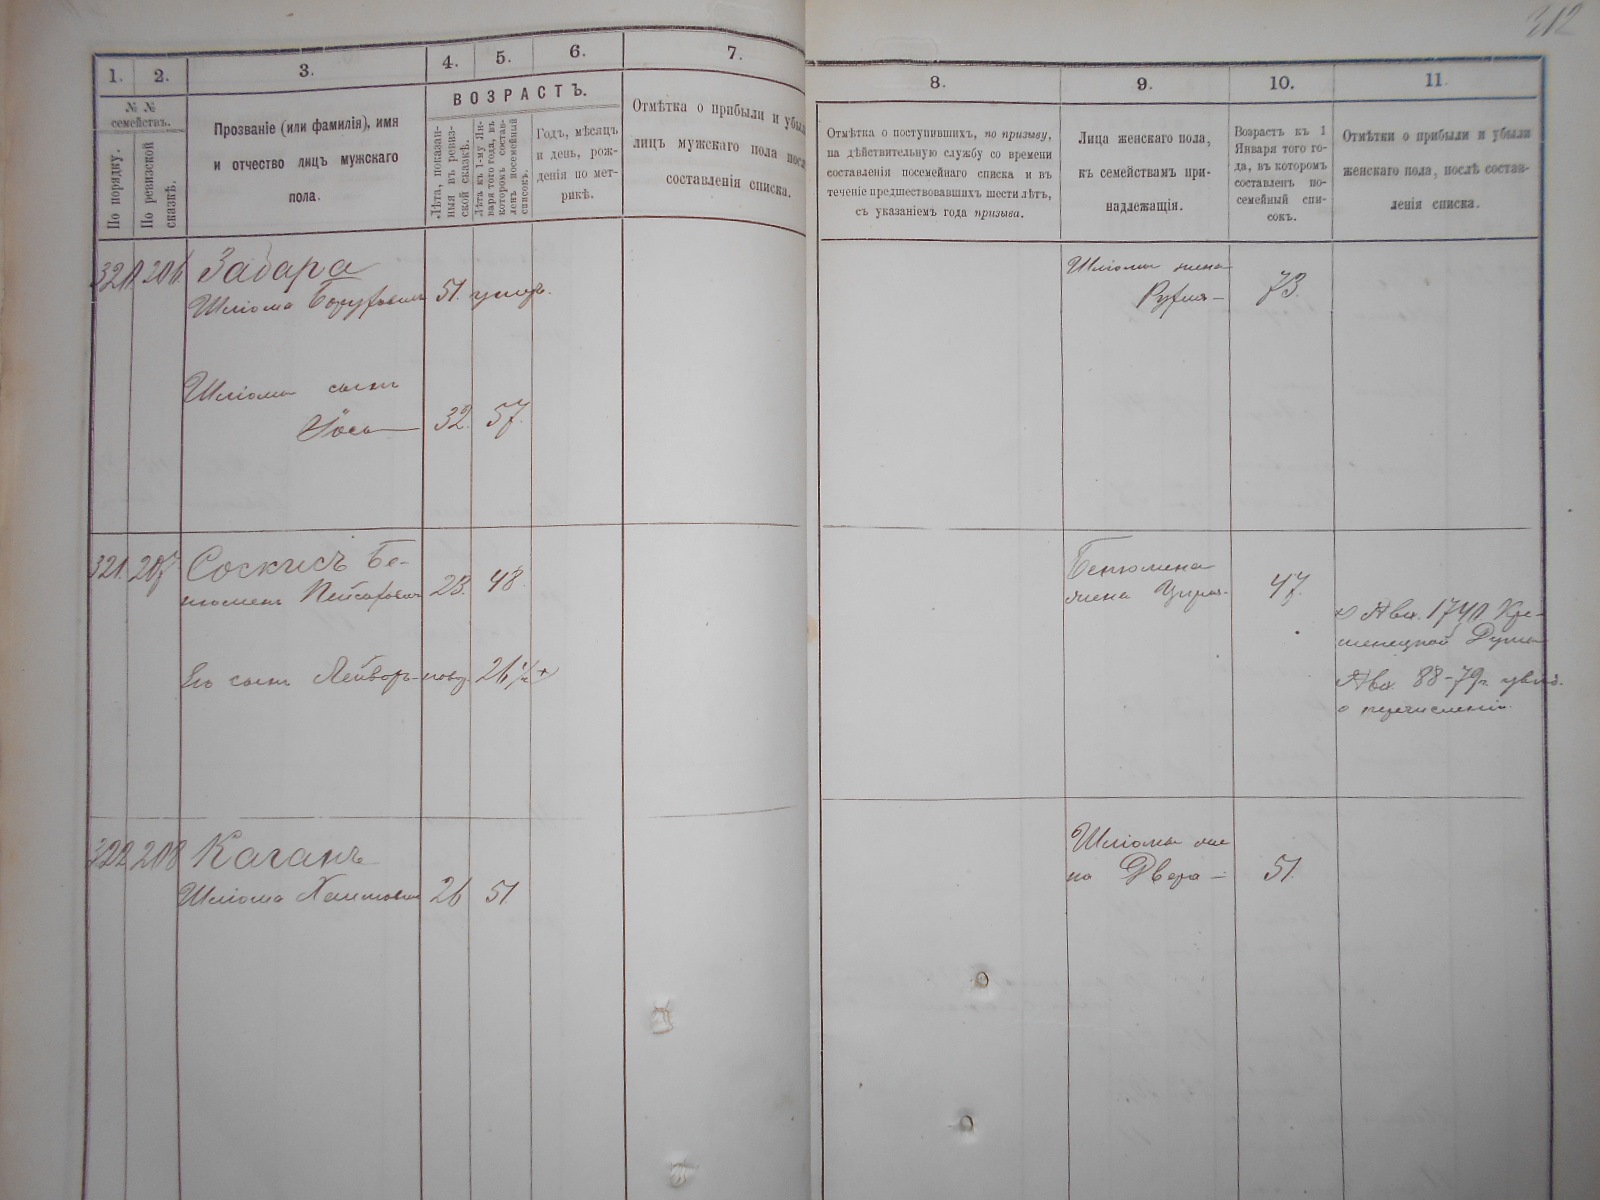 312
1. 2. 3. 4. 5. 6. 7.
№ №
семействъ.
По порядку.
По ревизской
сказкѣ.
Прозваніе (или фамилія), имя
и отчество лицъ мужскаго
пола.
ВОЗРАСТЪ.
Лѣта, показан-
ныя въ ревиз-
ской сказкѣ.
Лѣта къ 1-му Ян-
варя того года, въ
которомъ состав-
ленъ посемейный
списокъ.
Годъ, мѣсяцъ
и день, рож-
денія по мет-
рикѣ.
Отмѣтка о прибыли и убыли
лицъ мужскаго пола послѣ
составленія списка.
8. 9. 10. 11.
Отмѣтка о поступившихъ, по призыву,
на дѣйствительную службу со времени
составленія посемейнаго списка и въ
теченіе предшествовавшихъ шести лѣтъ,
съ указаніемъ года призыва.
Лица женскаго пола,
къ семействамъ при-
надлежащія.
Возрастъ къ 1
Января того го-
да, въ которомъ
составленъ по-
семейный спи-
сокъ.
Отмѣтки о прибыли и убыли
женскаго пола, послѣ состав-
ленія списка.
320 206 Забара
Шліома Боруховичъ 51. умеръ.
Шліомы жена
Рухля 73.
Шліомы сынъ
Йось 32. 57.
321. 207 Соскисъ Бе-
нюменъ Пейсаховичъ 23. 48
Бенюмена
жена Цирля 47.
Его сынъ Лейзоръ новор. 26
Вх. 1740 Кре-
менецкой Думы
Вх. 88-79 г. увѣд.
о перечисленіи
322 208 Каганъ
Шліома Хаимовичъ 26 51
Шліомы же
на Двера 51.